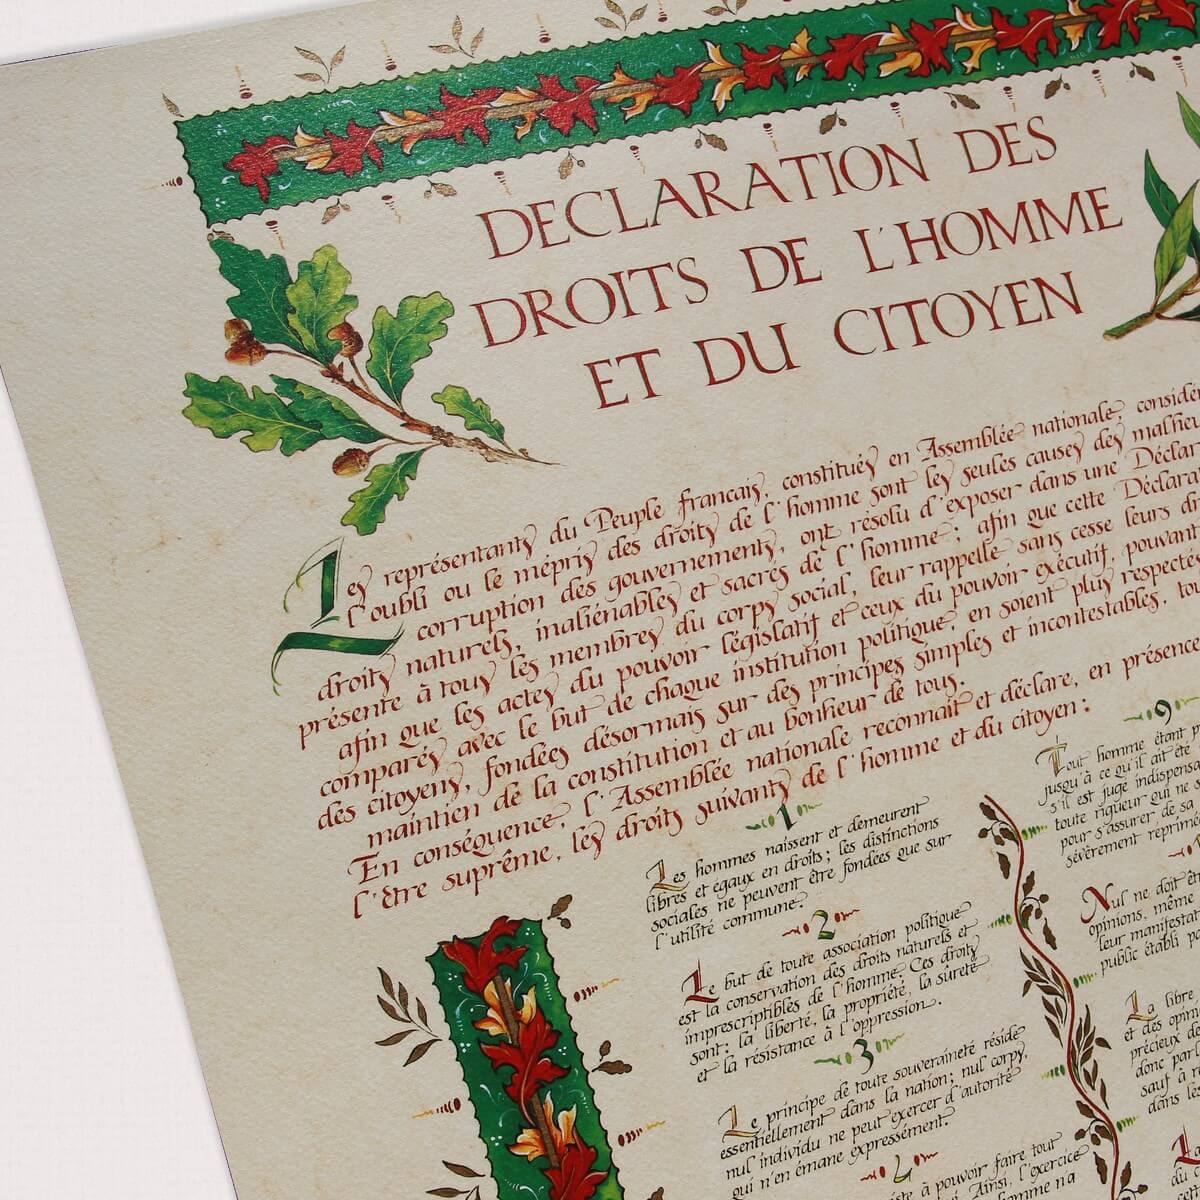 DECLARATION DES
DROITS DE L'HOMME
ET DU CITOYEN
Les représentants du Peuple francais, constitués en Assemblée nationale, considér
l'oubli ou le mépris des droits de l'homme sont les seules causes des malheu
corruption des gouvernements, ont résolu d'exposer dans une Déclar
droits naturels, inaliénables et sacrés de l'homme; afin que cette Déclara
présente à tous les membres du corps social, leur rappelle sans cesse leurs dr
afin que les actes du pouvoir législatif et ceux du pouvoir exécutif, pouvant
comparés avec le but de chaque institution politique, en soient plus respectés
des citoyens, fondées désormais sur des principes simples et incontestables, tou
maintien de la constitution et au bonheur de tous.
En conséquence, l'Assemblée nationale reconnait et déclare, en présence
l'être suprême, les droits suivants de l'homme et du citoyen:
1
Les hommes naissent et demeurent
libres et égaux en droits; les distinctions
sociales ne peuvent être fondées que sur
l'utilité commune.
2
Le but de toute association politique
est la conservation des droits naturels et
imprescriptibles de l'homme. Ces droits
sont: la liberté, la propriété, la sûreté
et la résistance à l'oppression.
3
Le principe de toute souveraineté réside
essentiellement dans la nation; nul corps,
nul individu ne peut exercer d'autorité
qui n'en émane expressément.
4
iste à pouvoir faire tout
Ainsi, l'exercice
omme n'a
9
Tout homme étant p
jusqu'à ce qu'il ait été
s'il est jugé indispensa
toute rigueur qui ne s
pour s'assurer de sa
sévèrement réprimé
Nul ne doit êt
opinions, même
leur manifestat
public établi pa
La libre
et des opini
précieux de
donc parl
sauf à ré
dans les